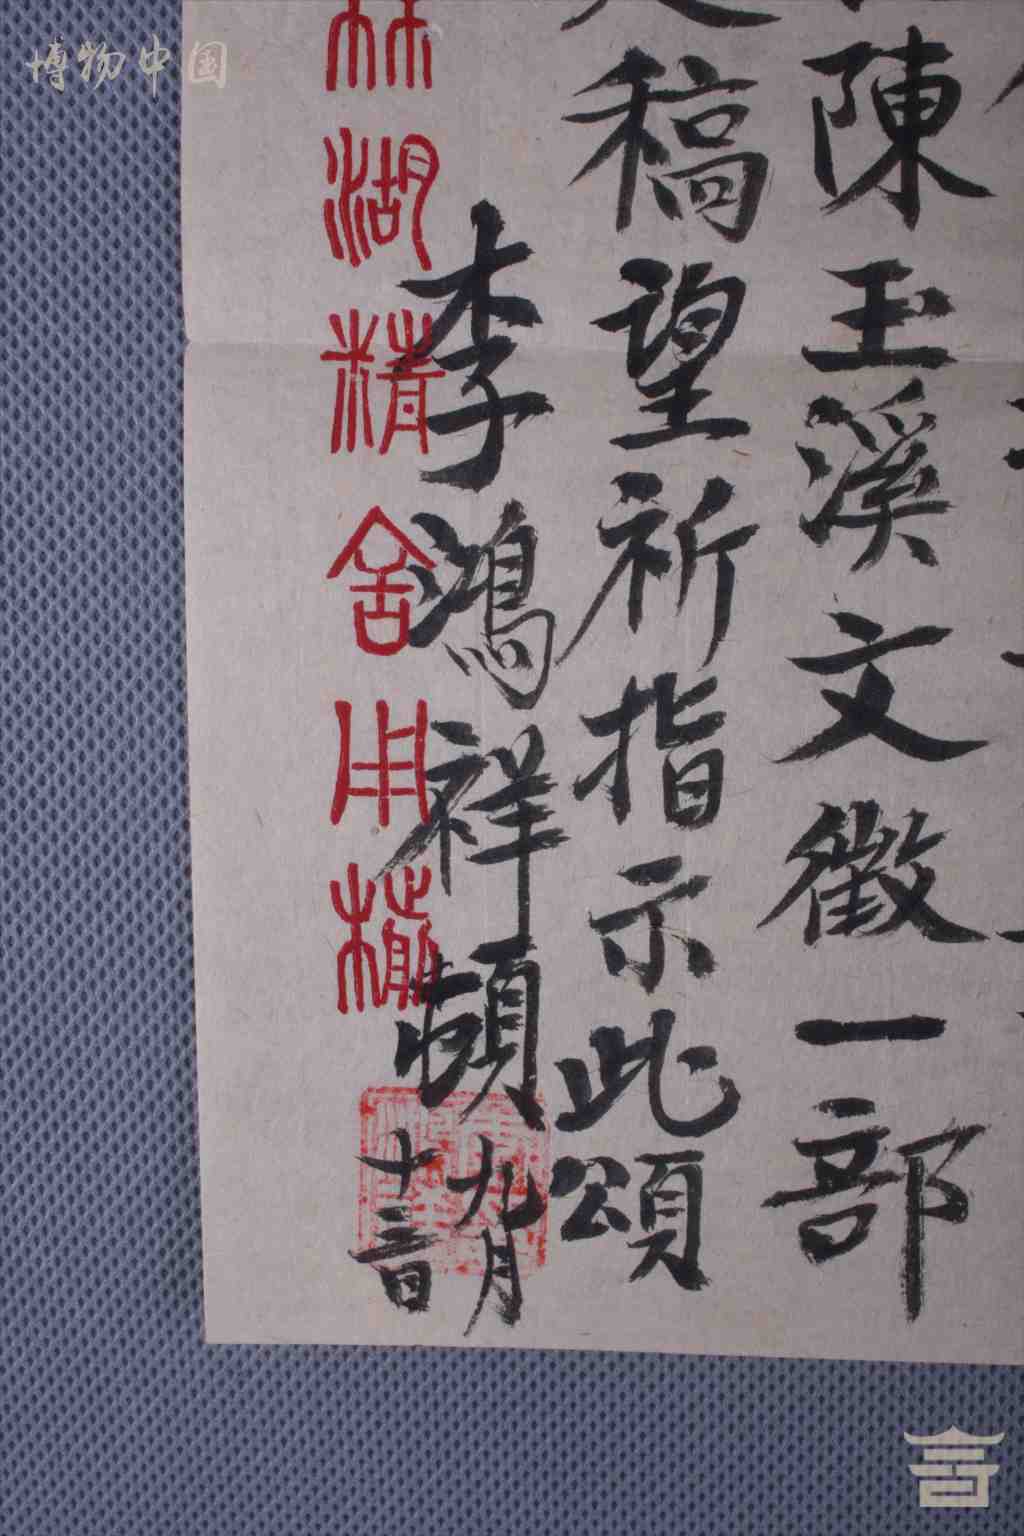 博物中国
陳玉溪文徵一部
稿望祈指示此頌
李鴻祥頓
九月
十三日
林湖精舍用牋